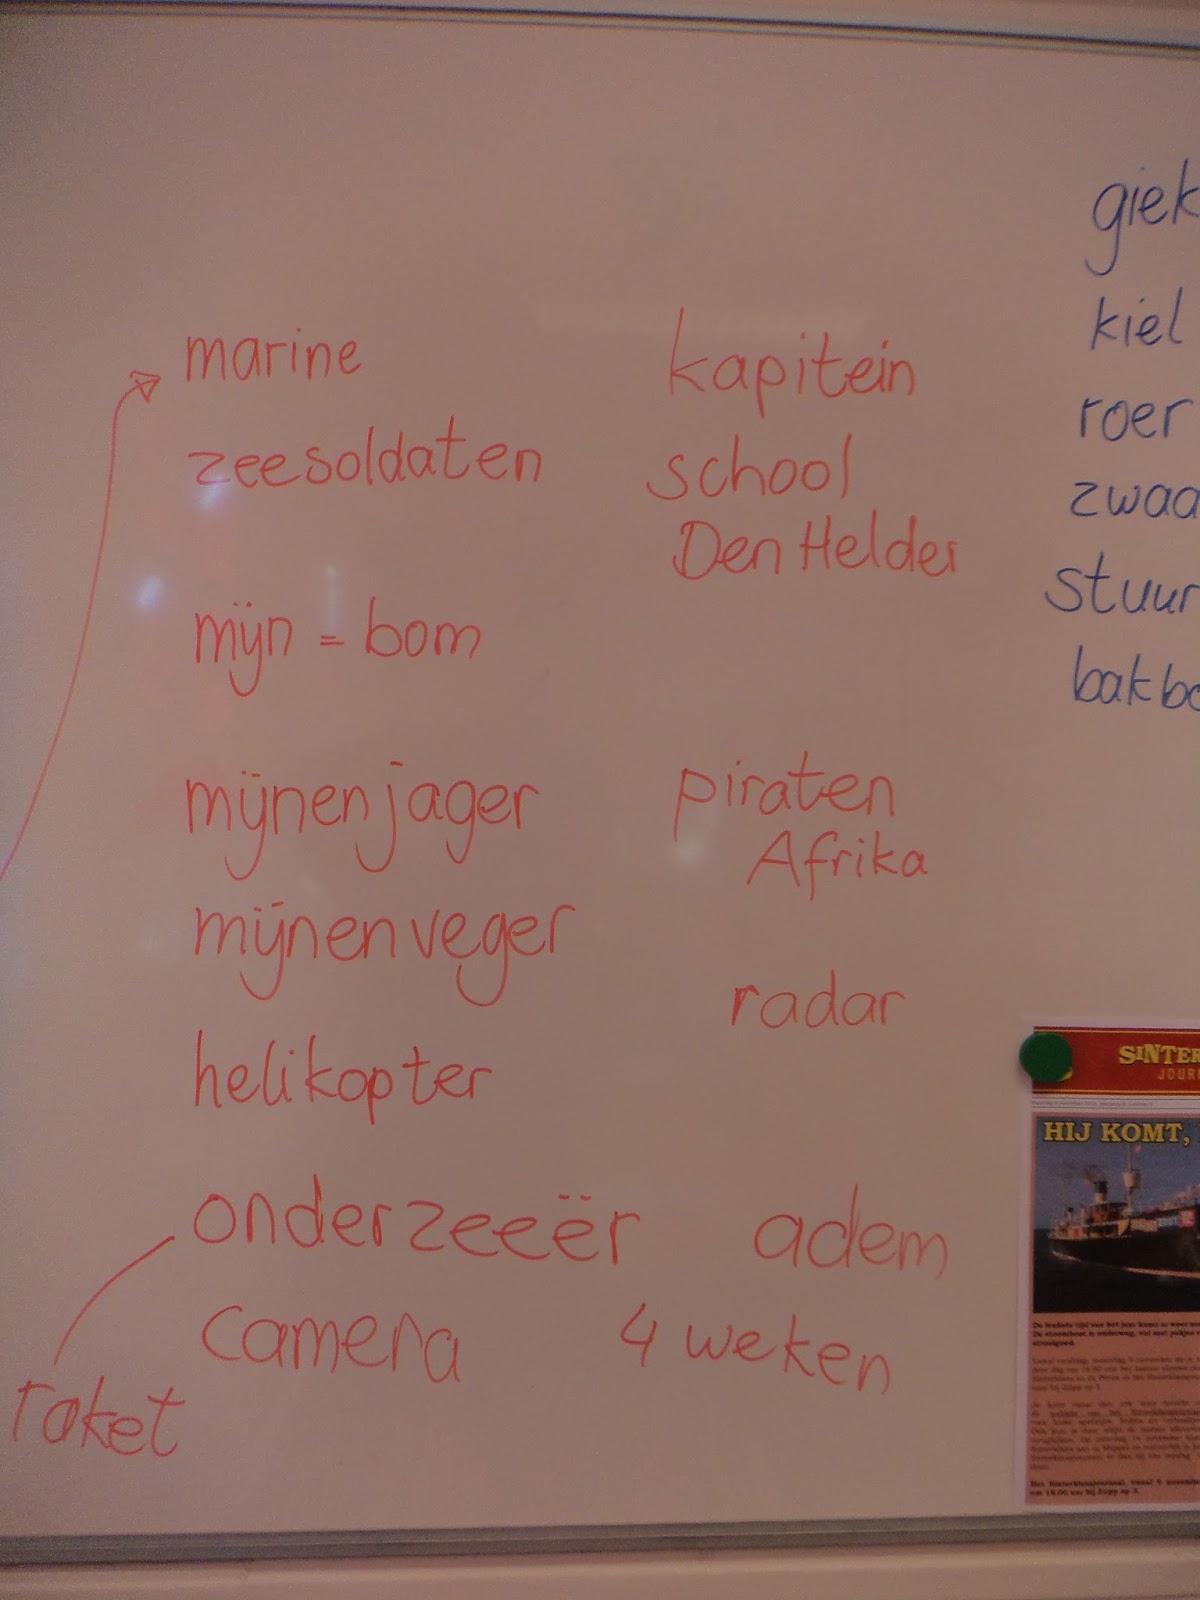 marine
zeesoldaten
mijn = bom
mijnenjager
mijnenveger
helikopter
onderzeeër
camera
raket
kapitein
school
Den Helder
piraten
Afrika
radar
adem
4 weken
giek
kiel
roer
zwaa
stuur
bakbo
SINTER
JOUR
HIJ KOMT,